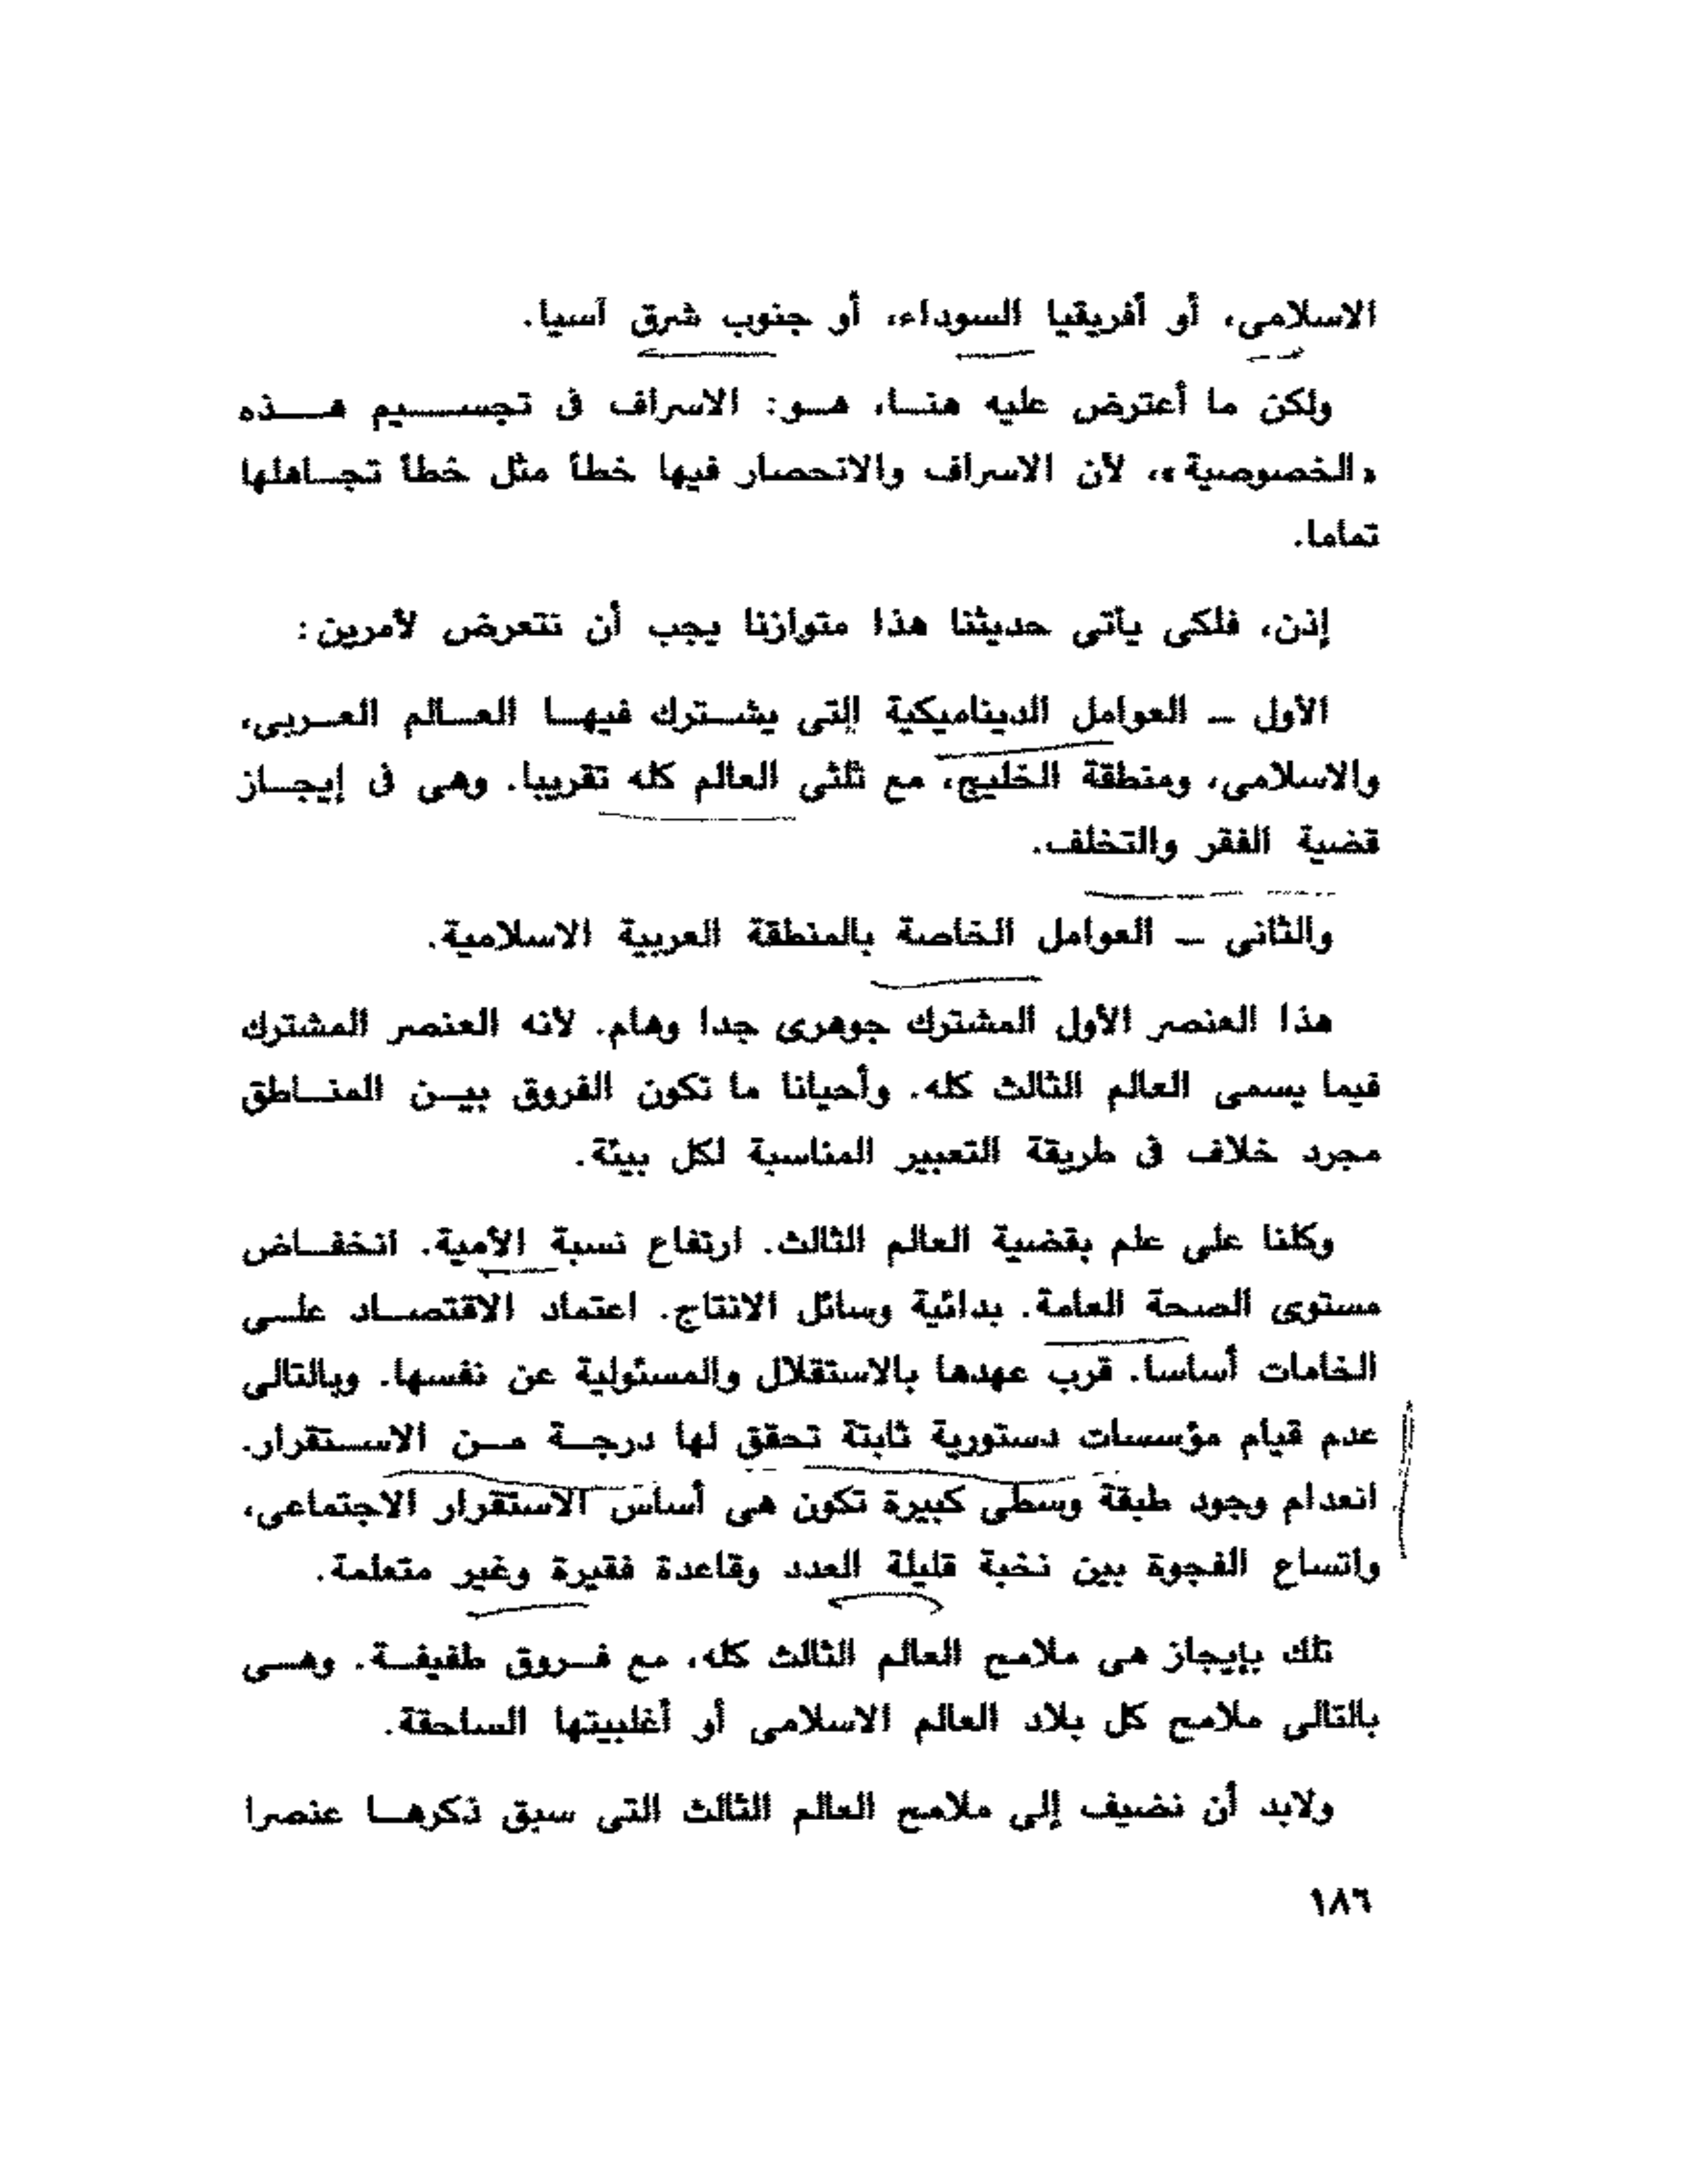 الاسلامى، أو أفريقيا السوداء، أو جنوب شرق آسيا.
ولكن ما أعترض عليه هنا، هو: الاسراف فى تجسيم هذه
«الخصوصية»، لأن الاسراف والانحصار فيها خطأ مثل خطأ تجاهلها
تماما.
إذن، فلكى يأتى حديثنا هذا متوازنا يجب أن نتعرض لأمرين:
الأول — العوامل الديناميكية التى يشترك فيها العالم العربى،
والاسلامى، ومنطقة الخليج، مع ثلثى العالم كله تقريبا. وهى فى إيجاز
قضية الفقر والتخلف.
والثانى — العوامل الخاصة بالمنطقة العربية الاسلامية.
هذا العنصر الأول المشترك جوهرى جدا وهام. لأنه العنصر المشترك
فيما يسمى العالم الثالث كله. وأحيانا ما تكون الفروق بين المناطق
مجرد خلاف فى طريقة التعبير المناسبة لكل بيئة.
وكلنا على علم بقضية العالم الثالث. ارتفاع نسبة الأمية. انخفاض
مستوى الصحة العامة. بدائية وسائل الانتاج. اعتماد الاقتصاد على
الخامات أساسا. قرب عهدها بالاستقلال والمسئولية عن نفسها. وبالتالى
عدم قيام مؤسسات دستورية ثابتة تحقق لها درجة من الاستقرار.
انعدام وجود طبقة وسطى كبيرة تكون هى أساس الاستقرار الاجتماعى،
واتساع الفجوة بين نخبة قليلة العدد وقاعدة فقيرة وغير متعلمة.
تلك بإيجاز هى ملامح العالم الثالث كله، مع فروق طفيفة. وهى
بالتالى ملامح كل بلاد العالم الاسلامى أو أغلبيتها الساحقة.
ولابد أن نضيف إلى ملامح العالم الثالث التى سبق ذكرها عنصرا
١٨٦